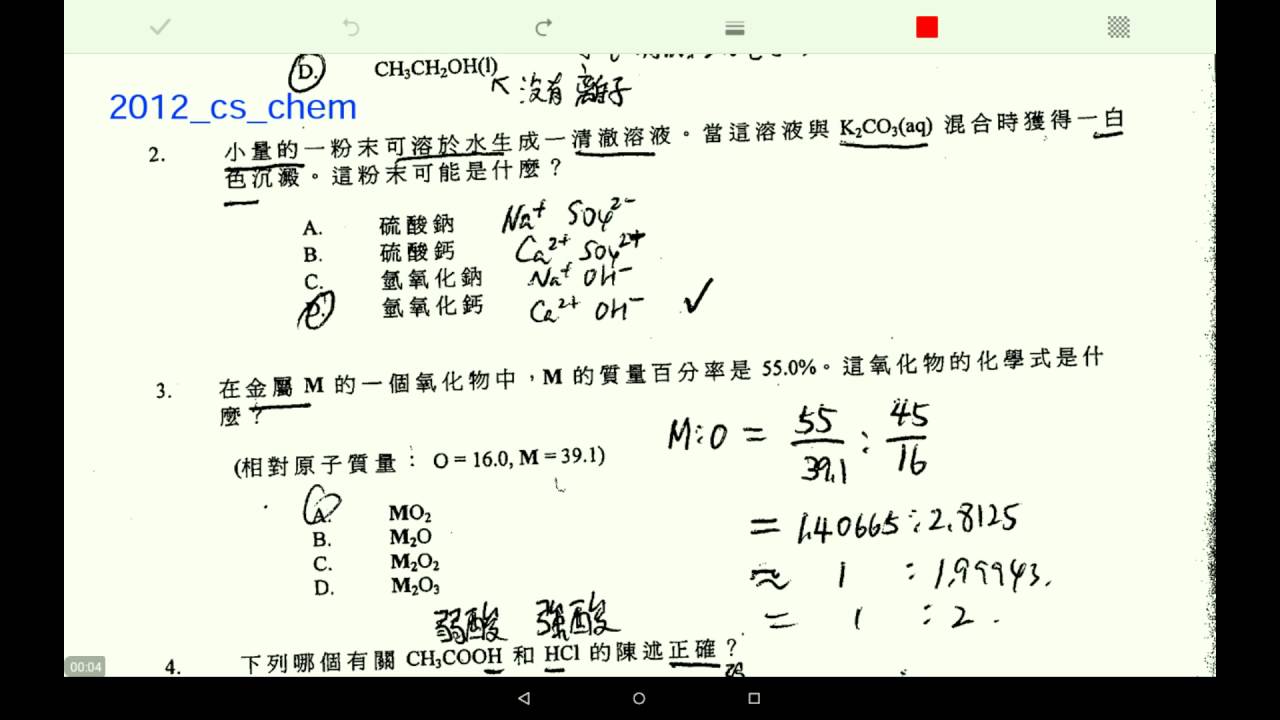 D. CH3CH2OH(l)
没有離子
2012_cs_chem
2. 小量的一粉末可溶於水生成一清澈溶液。當這溶液與 K2CO3(aq) 混合時獲得一白
色沉澱。這粉末可能是什麼?
A. 硫酸鈉 Na+ SO4 2-
B. 硫酸鈣 Ca2+ SO4 2+
C. 氫氧化鈉 Na+ OH-
D. 氫氧化鈣 Ca2+ OH- ✓
3. 在金屬 M 的一個氧化物中,M 的質量百分率是 55.0%。這氧化物的化學式是什
麼?
M:O = 55/39.1 : 45/16
(相對原子質量: O = 16.0, M = 39.1)
A. MO2
= 1.40665 : 2.8125
B. M2O
C. M2O2
≈ 1 : 1.99943.
D. M2O3
= 1 : 2.
弱酸 強酸
4. 下列哪個有關 CH3COOH 和 HCl 的陳述正確?
00:04